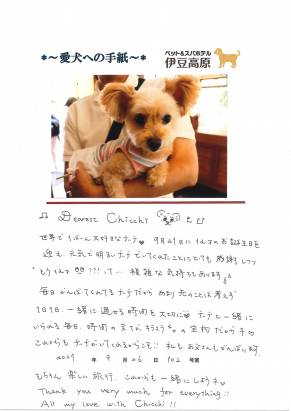 *～愛犬への手紙～*
ペット&スパホテル
伊豆高原
♫ Dearest Chicchi ♫
世界でいちばん大好きなチッチ♥ 9月21日に1才のお誕生日を
迎え 元気で明るいチッチでいてくれたことにとても感謝しつつ
って… 複雑な気持ちもあります
毎日がんばってくれてるチッチだから あまり先のことは考えず
1日1日 一緒に過ごす時間を大切に♥ チッチと一緒に
いられる毎日、時間の全てが の宝物だから
これからも
年 9 月 26 日 102 号室
もちろん 楽しい旅行、これからも一緒にしようネ♥
Thank you very much for everything!!
All my love with Chicchi!!